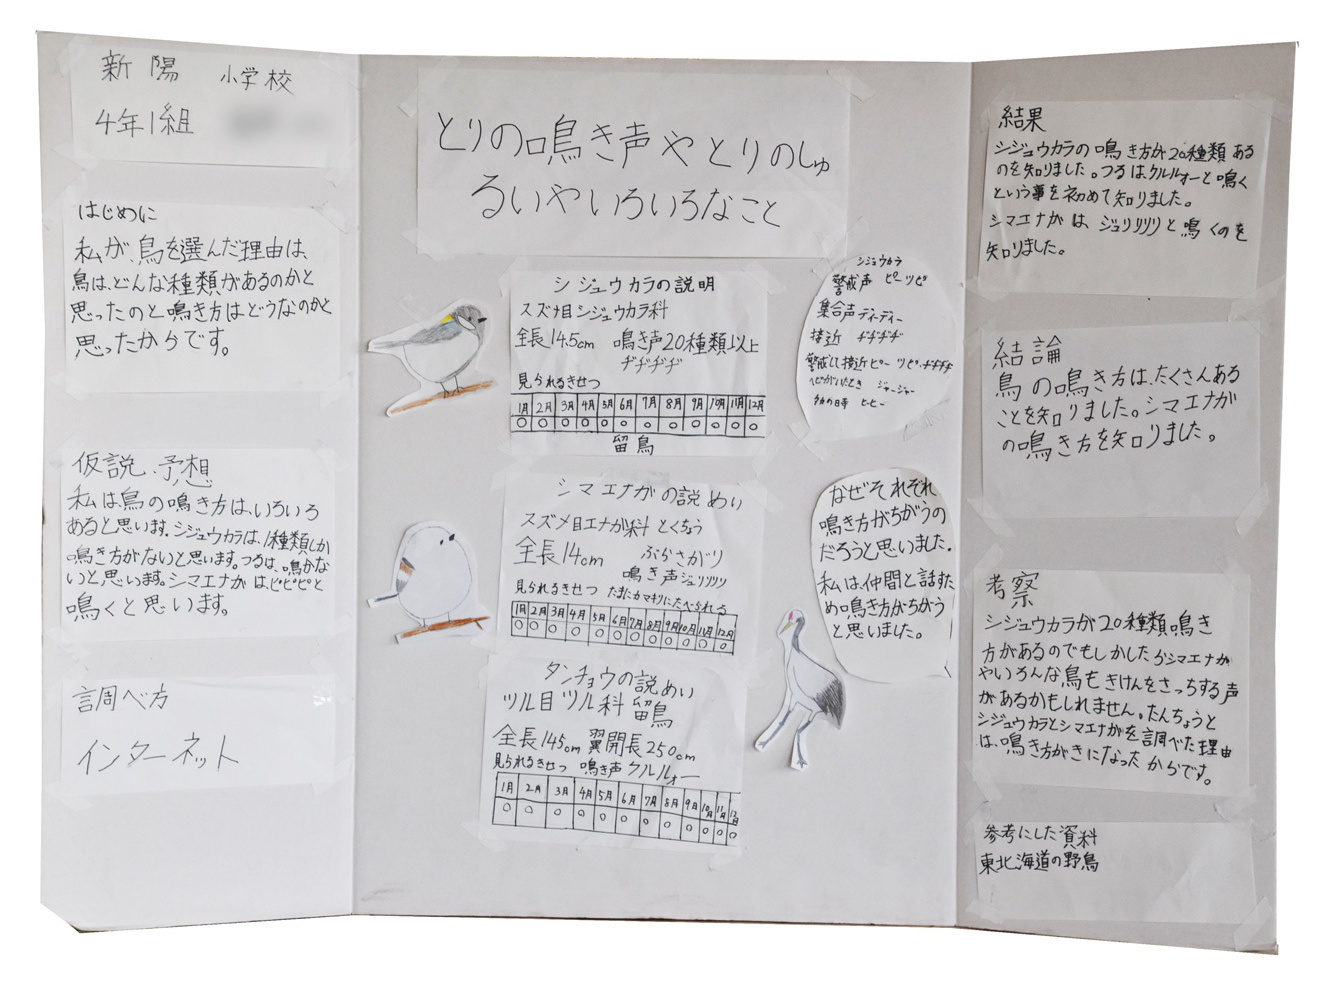 新陽 小学校
4年1組
はじめに
私が、鳥を選んだ理由は、
鳥は、どんな種類があるのかと
思ったのと鳴き方はどうなのかと
思ったからです。
仮説、予想
私は鳥の鳴き方は、いろいろ
あると思います。シジュウカラは、1種類しか
鳴き方がないと思います。つるは、鳴かな
いと思います。シマエナガは、ピピピと
鳴くと思います。
調べ方
インターネット
とりの鳴き声やとりのしゅ
るいやいろいろなこと
シジュウカラの説明
スズメ目シジュウカラ科
全長14.5cm 鳴き声20種類以上
ヂヂヂヂ
見られるきせつ
1月 2月 3月 4月 5月 6月 7月 8月 9月 10月 11月 12月
○ ○ ○ ○ ○ ○ ○ ○ ○ ○ ○ ○
留鳥
シマエナガの説めい
スズメ目エナガ科 とくちょう
全長14cm ぶらさがり
鳴き声ジュリリリリ
見られるきせつ たまにカマキリにたべられる
1月 2月 3月 4月 5月 6月 7月 8月 9月 10月 11月 12月
○ ○ ○ ○ ○ ○ ○ ○ ○ ○ ○ ○
タンチョウの説めい
ツル目ツル科 留鳥
全長145cm 翼開長250cm
見られるきせつ 鳴き声クルルォー
1月 2月 3月 4月 5月 6月 7月 8月 9月 10月 11月 12月
○ ○ ○ ○ ○ ○ ○ ○ ○ ○ ○ ○
シジュウカラ
警戒声 ピーツピ
集合声 ディーディー
接近 ヂヂヂヂ
警戒して接近ピーツピ・ヂヂヂヂ
ヘビがいたとき ジャージャー
の時 ヒーヒー
なぜそれぞれ
鳴き方がちがうの
だろうと思いました。
私は、仲間と話すた
め鳴き方がちがう
と思いました。
結果
シジュウカラの鳴き方が20種類ある
のを知りました。つるはクルルォーと鳴く
という事を初めて知りました。
シマエナガは、ジュリリリリと鳴くのを
知りました。
結論
鳥の鳴き方は、たくさんある
ことを知りました。シマエナガ
の鳴き方を知りました。
考察
シジュウカラが20種類鳴き
方があるのでもしかしたらシマエナガ
やいろんな鳥もきけんをさっちする声
があるかもしれません。たんちょうと
シジュウカラとシマエナガを調べた理由
は、鳴き方がきになったからです。
参考にした資料
東北海道の野鳥